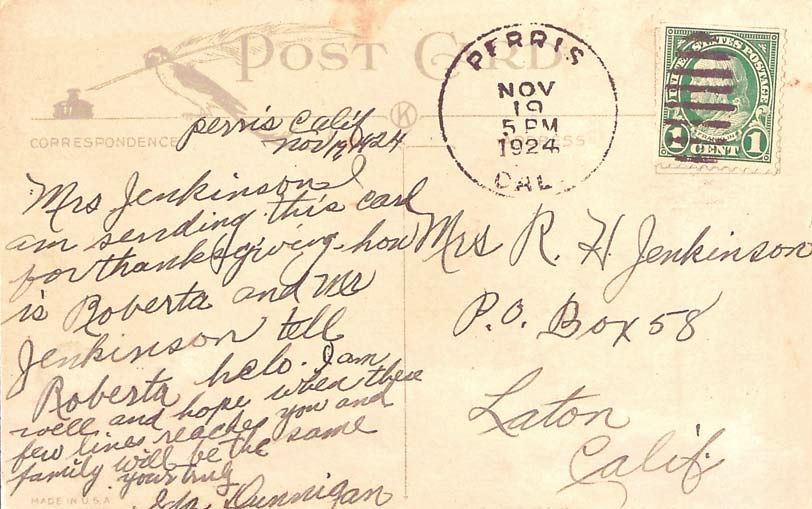 POST CARD
PERRIS
NOV
19
5 PM
1924
CAL.
UNITED STATES POSTAGE
FRANKLIN
1 CENT 1
CORRESPONDENCE
perris Calif
nov 19, 1924
Mrs Jenkinson I
am sending this card
for thanksgiving. how
is Roberta and Mr
Jenkinson tell
Roberta helo. I am
well and hope when these
few lines reaches you and
family will be the same
yours truly
Dunnigan
Mrs R. H. Jenkinson
P.O. Box 58
Laton
Calif.
MADE IN U.S.A